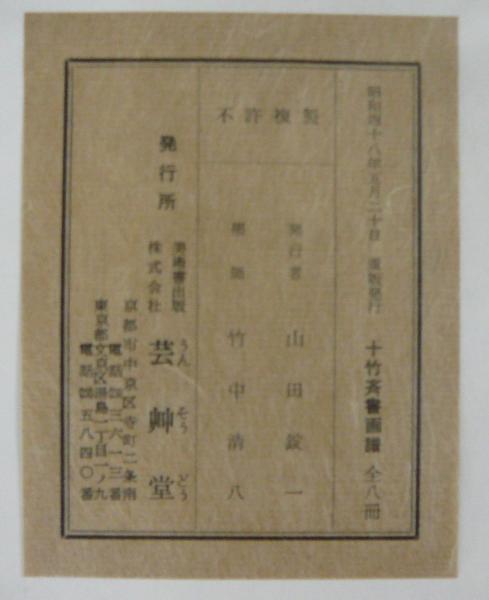 昭和四十八年五月二十日 重版発行 十竹斎書画譜 全八冊
不許複製
発行者 山田錠一
竹中清八
発行所
美術書出版
株式会社
芸艸堂
うんそうどう
京都市中京区寺町二条南
電話 三六一三番
東京都文京区湯島一丁目一ノ九
電話 五八四〇番